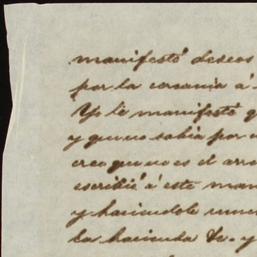 manifestó deseos
por la cercania á
Yo lé manifesté q
y que no sabia por
creo que no es el arr
escribié á este man
y haciendole
la hacienda &. y